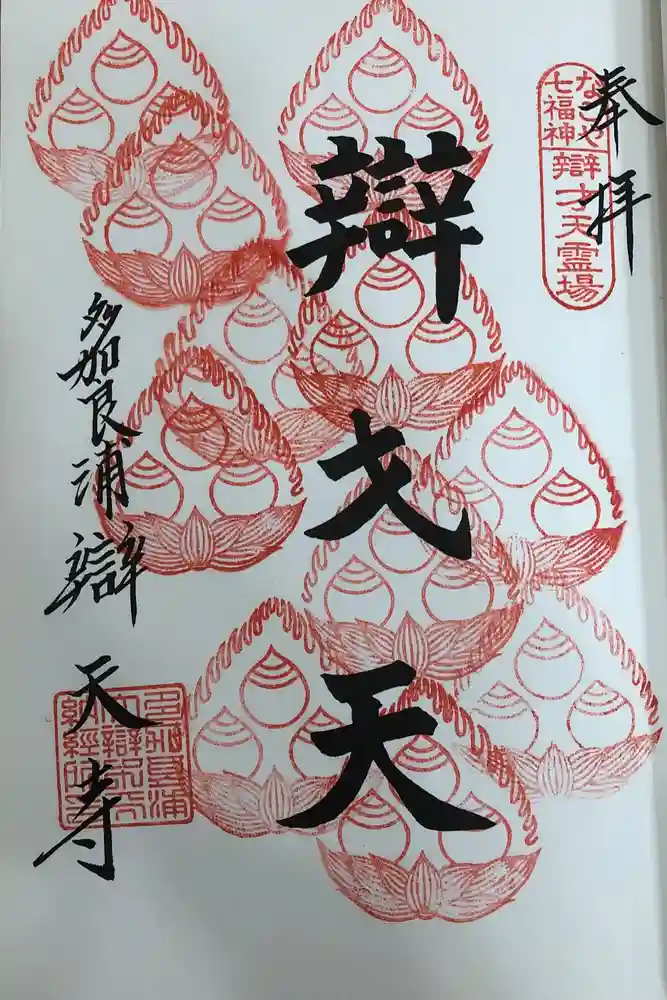 奉拝
なごや
七福神
辯才天霊場
辯才天
多加良浦辯天寺